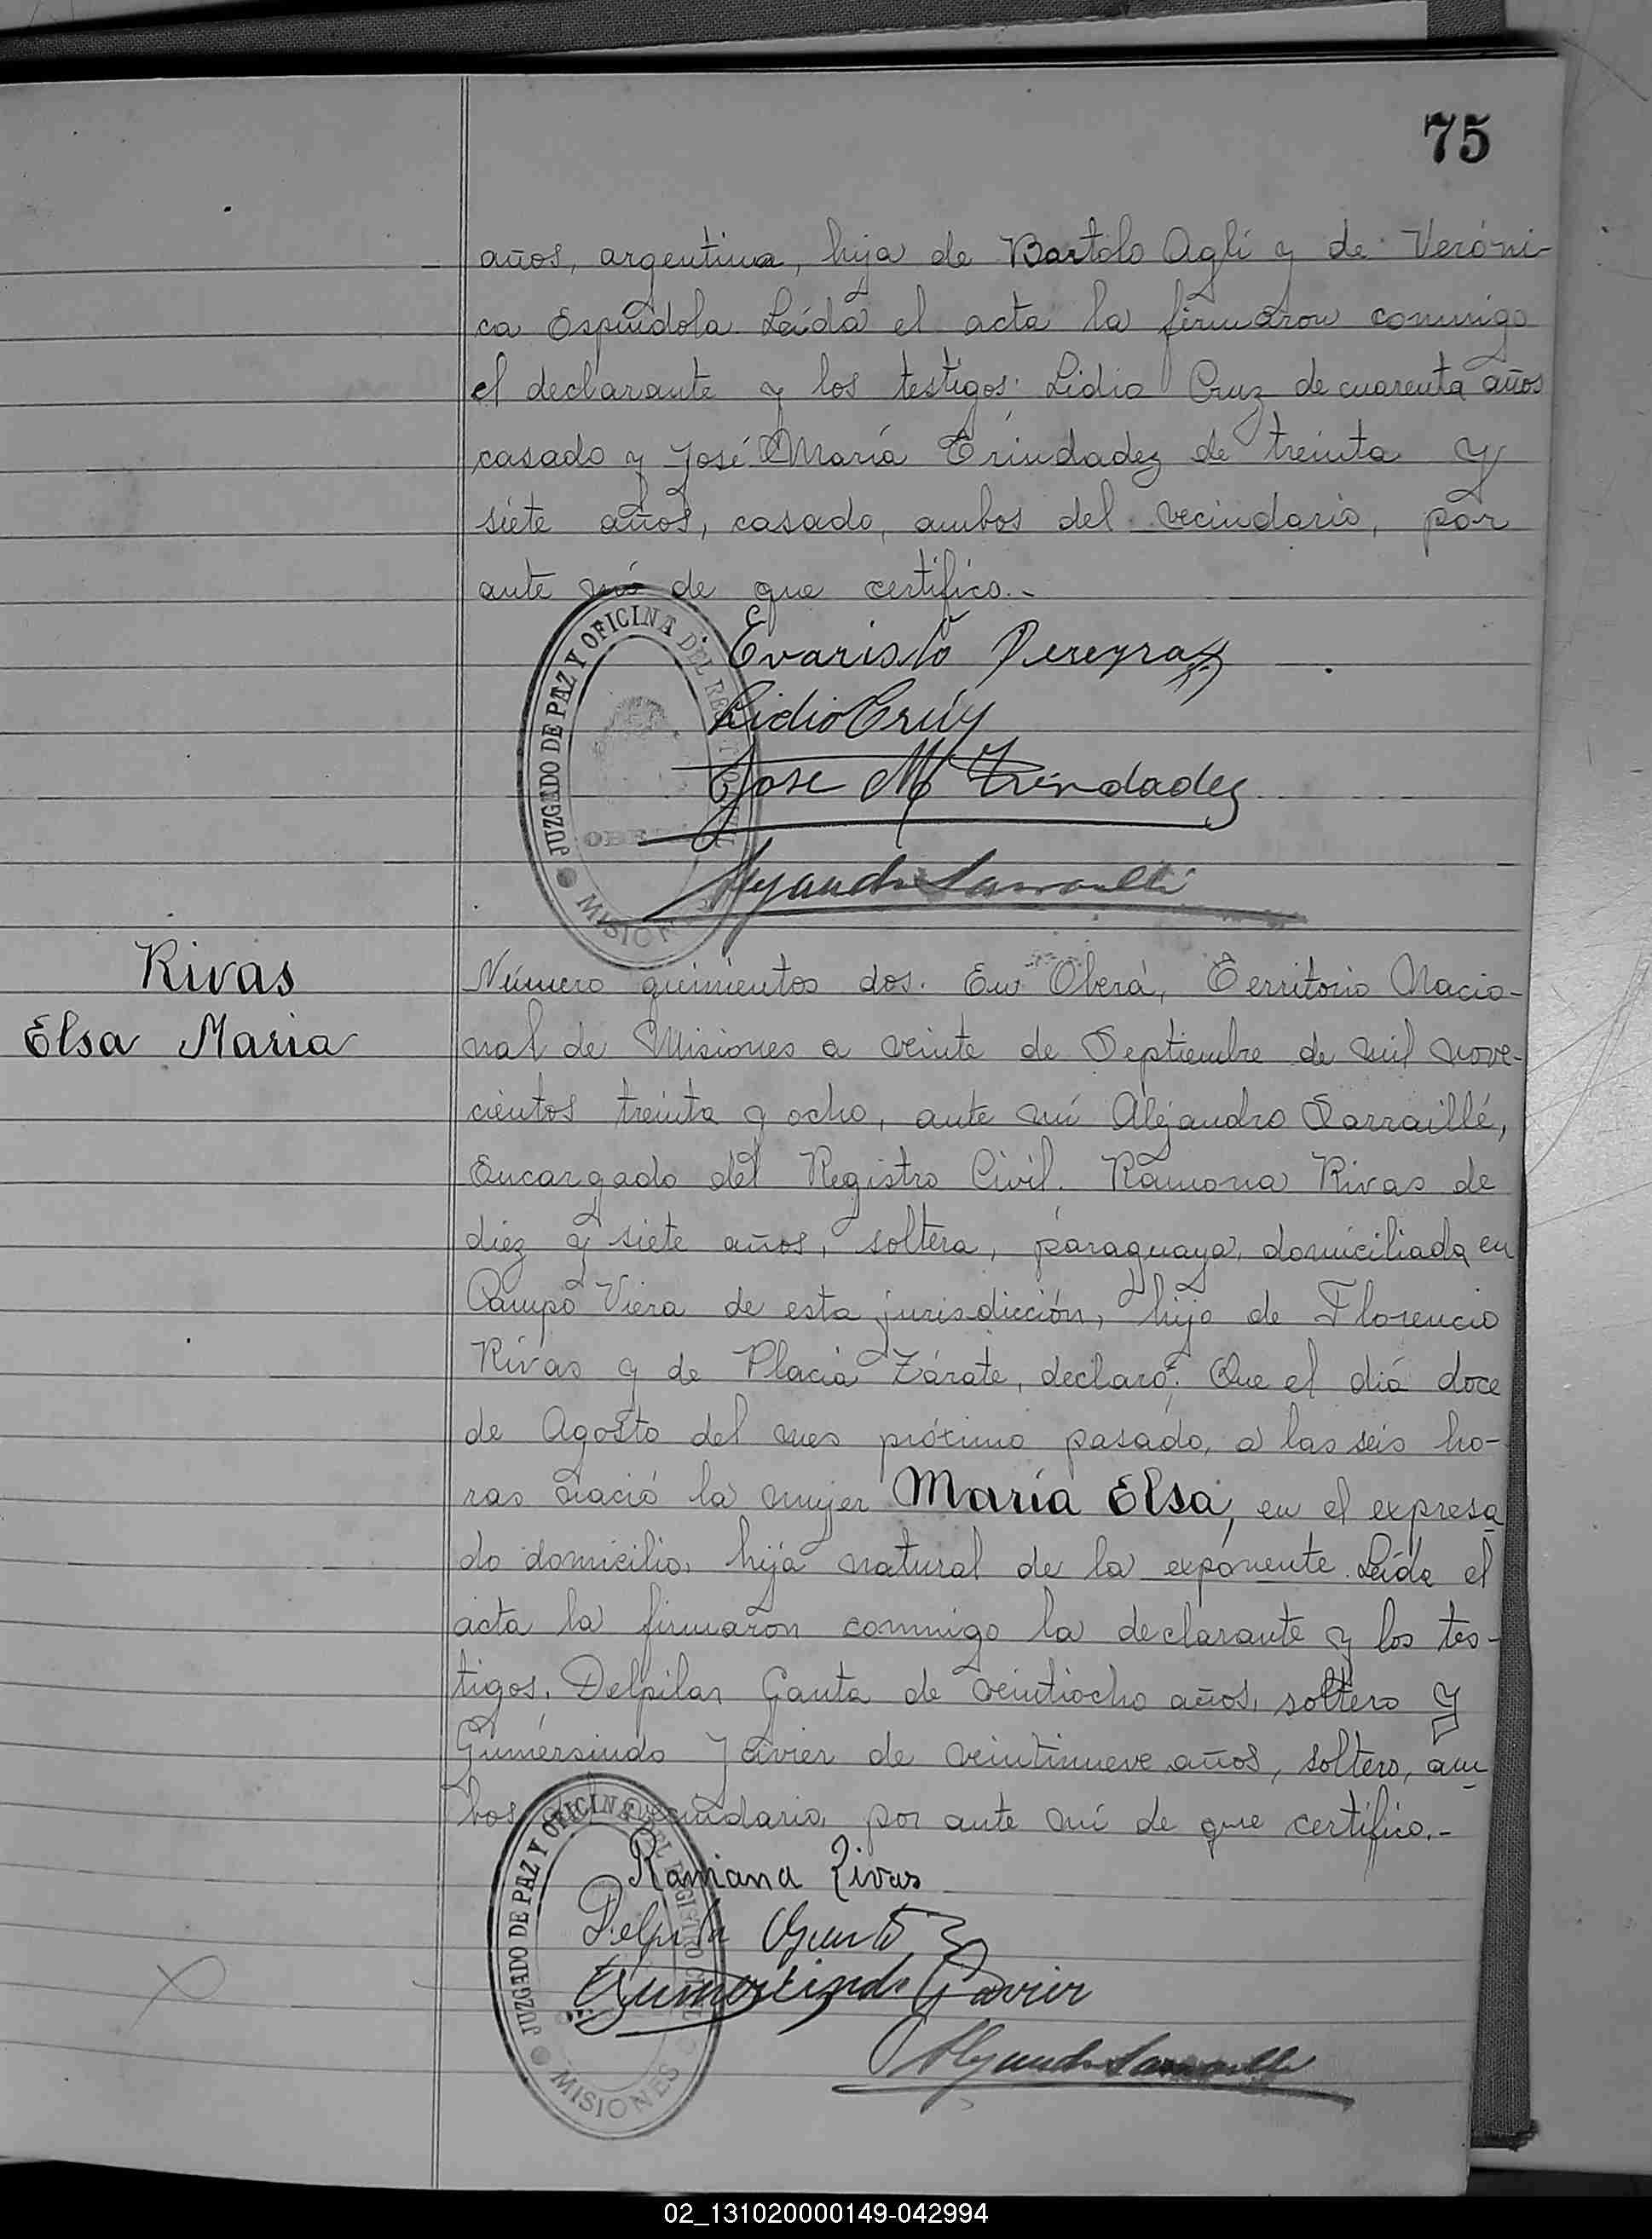 75
años, argentina, hija de Bartolo Agli y de Veróni-
ca Espíndola. Leída el acta la firmaron conmigo
el declarante y los testigos: Lidio Cruz de cuarenta años
casado y José María Trindadez de treinta y
siete años, casado, ambos del vecindario, por
ante mí de que certifico.-
JUZGADO DE PAZ Y OFICINA DEL REGISTRO CIVIL
OBERÁ
MISIONES
Evaristo Pereyra
Lidio Crúz
Jose M Trindadez
Alejandro Sarraillé
Rivas
Elsa Maria
Número quinientos dos. En Oberá, Territorio Nacio-
nal de Misiones a veinte de Septiembre de mil nove-
cientos treinta y ocho, ante mí Alejandro Sarraillé,
Encargado del Registro Civil. Ramona Rivas de
diez y siete años, soltera, paraguaya, domiciliada en
Campo Viera de esta jurisdicción, hija de Florencio
Rivas y de Placia Zárate, declaró: Que el día doce
de Agosto del mes próximo pasado, a las seis ho-
ras nació la mujer María Elsa, en el expresa
do domicilio, hija natural de la exponente. Leída el
acta la firmaron conmigo la declarante y los tes-
tigos, Delpilar Gauta de veintiocho años, soltero y
Gumersindo Javier de veintinueve años, soltero, am
bos del vecindario, por ante mí de que certifico.-
JUZGADO DE PAZ Y OFICINA DEL REGISTRO CIVIL
MISIONES
Ramana Rivas
Gumersindo Gavier
Alejandro Sarraillé
02_131020000149-042994